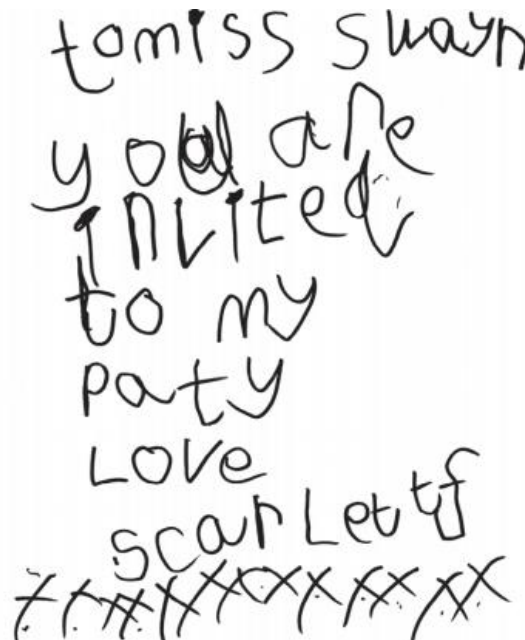 tomiss swayn
you are
invited
to my
paty
Love
scarLettf
xxxxxxxxxxxx